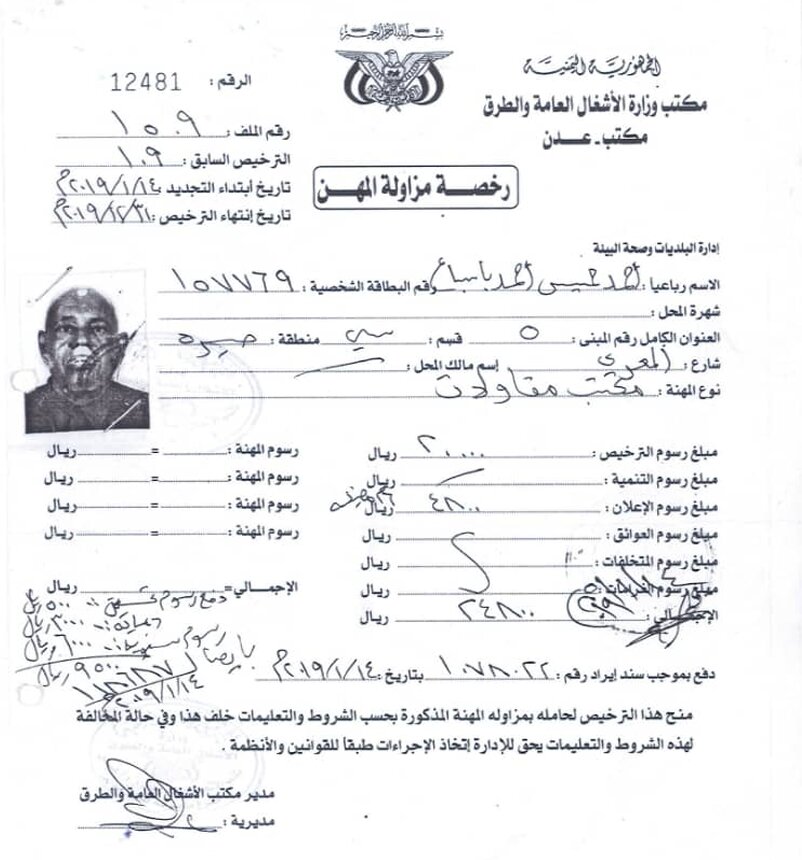 بسم الله الرحمن الرحيم
الجمهورية اليمنية
مكتب وزارة الأشغال العامة والطرق
مكتب ـ عدن
الرقم : 12481
رقم الملف : ١٥٠٩
الترخيص السابق : ١٠٩
تاريخ أبتداء التجديد : ٢٠١٩/١/١٤م
تاريخ إنتهاء الترخيص : ٢٠١٩/١٢/٣١م
رخصة مزاولة المهن
إدارة البلديات وصحة البيئة
الاسم رباعيا : أحمد خميس أحمد باسباع رقم البطاقة الشخصية : ١٥٧٧٦٩
شهرة المحل :
العنوان الكامل رقم المبنى : ٥ قسم : سي منطقة : صيره
شارع : المعري إسم مالك المحل :
نوع المهنة : مكتب مقاولات
مبلغ رسوم الترخيص : ٢٠٠٠٠ ريال رسوم المهنة : = ريال
مبلغ رسوم التنمية : ريال رسوم المهنة : = ريال
مبلغ رسوم الإعلان : ٤٨٠٠ ريال رسوم المهنة : = ريال
مبلغ رسوم العوائق : ريال رسوم المهنة : = ريال
مبلغ رسوم المتخلفات : ريال
مبلغ رسوم الغرامات : ريال الإجمالي = ريال
الإجمالي : ٢٤٨٠٠ ريال
دفع رسوم : ٥٠٠ ريال
دعاية : ٣٠٠٠ ريال
رسوم : ٦٠٠٠ ريال
٩٥٠٠ ريال
٢٠١٩/١/١٤
دفع بموجب سند إيراد رقم : ١٠٧٨٠٢٢ بتاريخ : ٢٠١٩/١/١٤م
منح هذا الترخيص لحامله بمزاوله المهنة المذكورة بحسب الشروط والتعليمات خلف هذا وفي حالة المخالفة
لهذه الشروط والتعليمات يحق للإدارة إتخاذ الإجراءات طبقاً للقوانين والأنظمة .
مدير مكتب الأشغال العامة والطرق
مديرية :